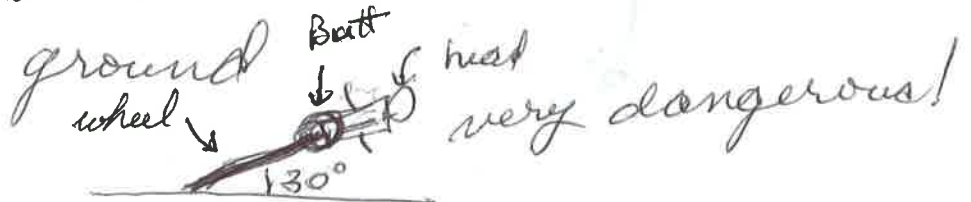 ground Butt head
wheel very dangerous!
30°